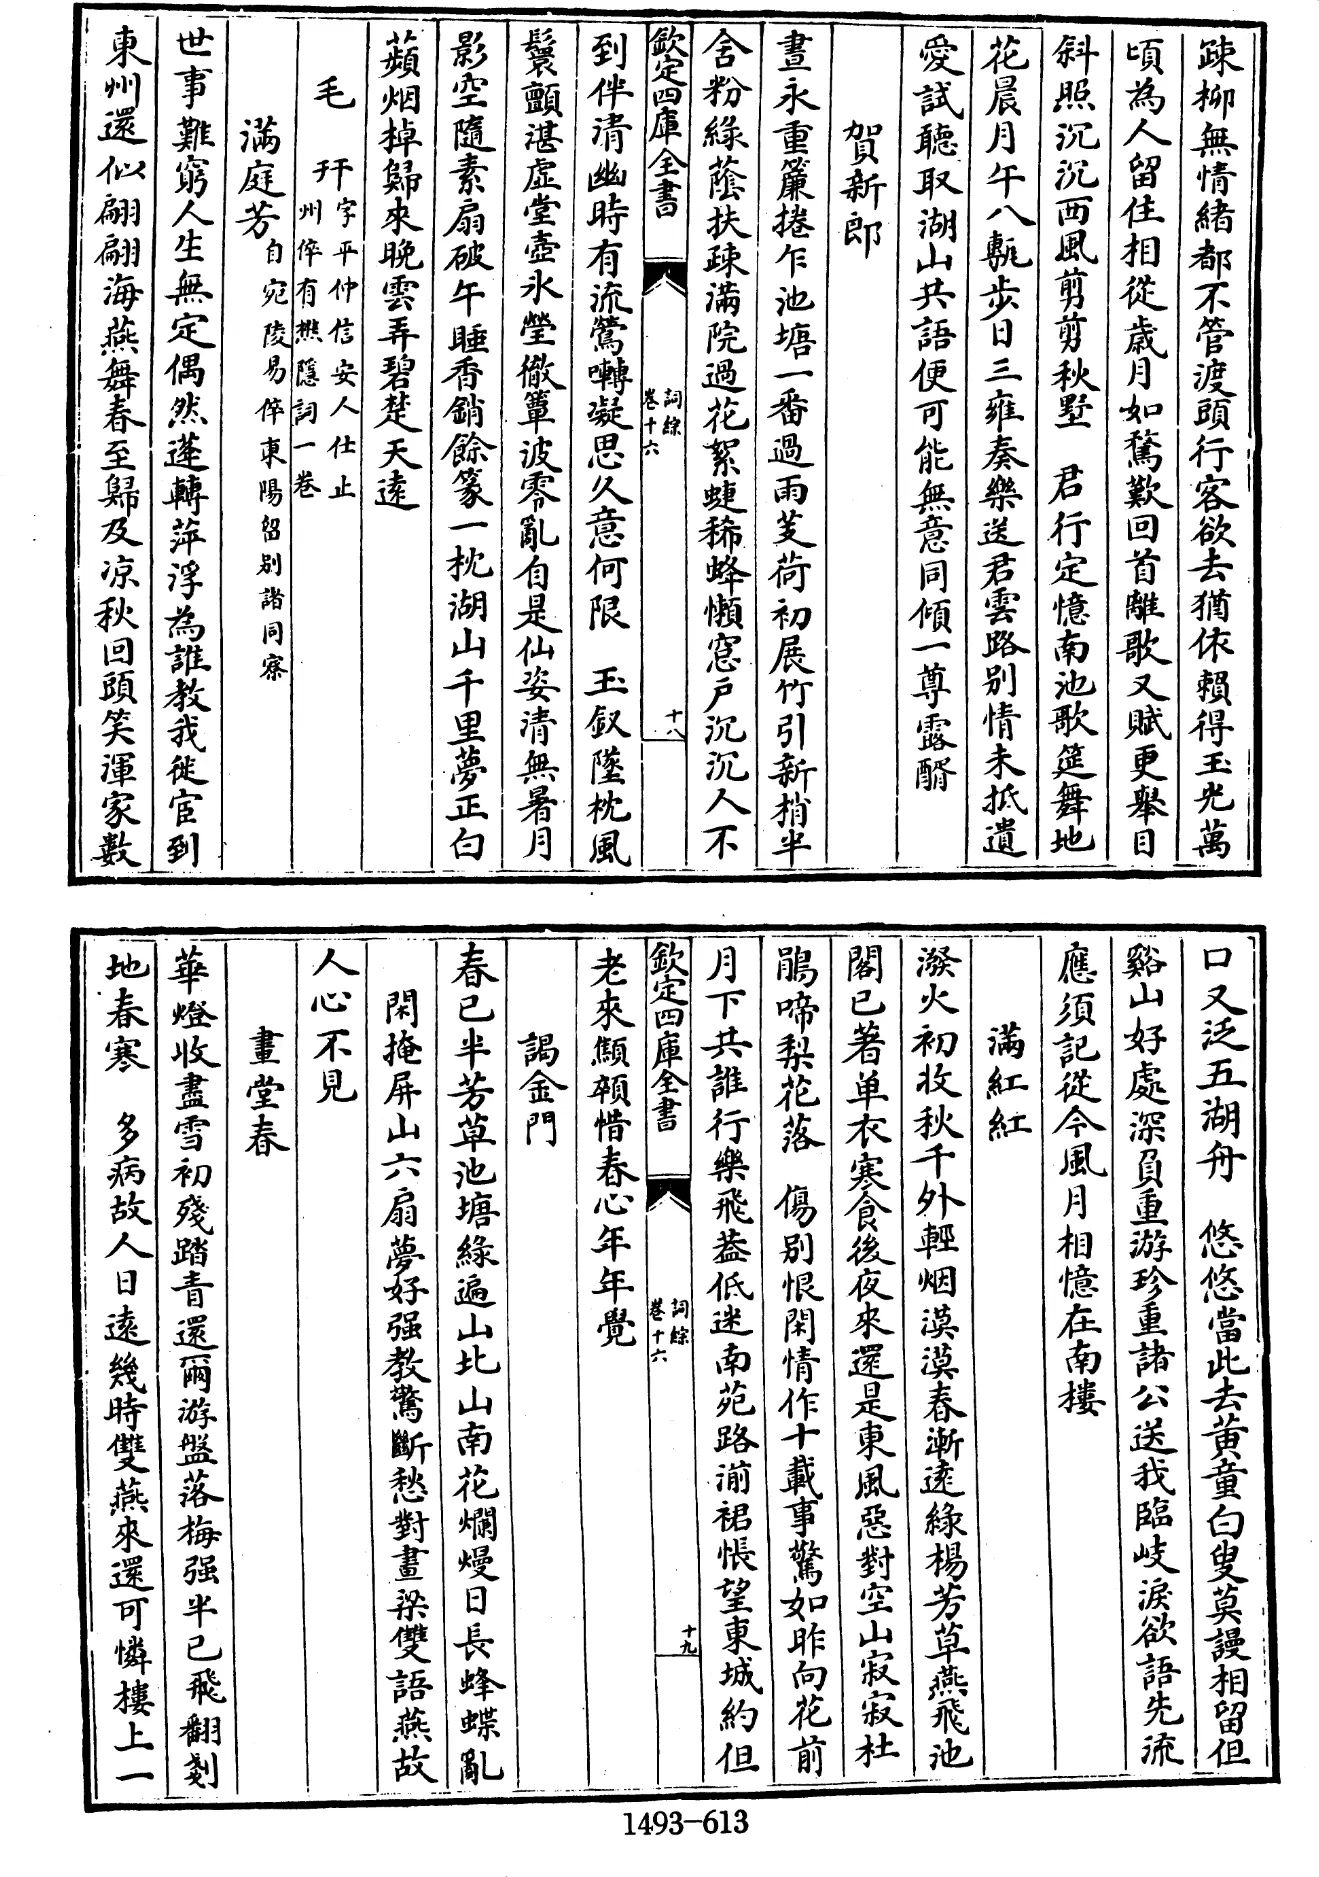 疎柳無情緒都不管渡頭行客欲去猶依賴得玉光萬
頃為人留住相從歲月如騖歎回首離歌又賦更舉目
斜照沉沉西風剪剪秋墅　君行定憶南池歌筵舞地
花晨月午八甎步日三雍奏樂送君雲路別情未抵遺
愛試聽取湖山共語便可能無意同傾一尊露醑
賀新郎
晝永重簾捲乍池塘一番過雨芰荷初展竹引新梢半
含粉綠蔭扶疎滿院過花絮蜨稀蜂懶窓戶沉沉人不
欽定四庫全書
詞綜
卷十六
十八
到伴清幽時有流鶯囀凝思久意何限　玉釵墜枕風
鬟顫湛虛堂壺氷瑩徹簟波零亂自是仙姿清無暑月
影空隨素扇破午睡香銷餘篆一枕湖山千里夢正白
蘋烟棹歸來晚雲弄碧楚天遠
毛　幵
字平仲信安人仕止
州倅有樵隱詞一卷
滿庭芳
自宛陵易倅東陽留別諸同寮
世事難窮人生無定偶然蓬轉萍浮為誰教我從宦到
東州還似翩翩海燕舞春至歸及凉秋回頭笑渾家數
口又泛五湖舟　悠悠當此去黃童白叟莫謾相留但
谿山好處深負重游珍重諸公送我臨岐淚欲語先流
應須記從今風月相憶在南樓
滿紅紅
潑火初收秋千外輕烟漠漠春漸遠綠楊芳草燕飛池
閣已著单衣寒食後夜來還是東風惡對空山寂寂杜
鵑啼梨花落　傷別恨閑情作十載事驚如昨向花前
月下共誰行樂飛葢低迷南苑路湔裙悵望東城約但
欽定四庫全書
詞綜
卷十六
十九
老來顦顇惜春心年年覺
謁金門
春已半芳草池塘綠遍山北山南花爛熳日長蜂蝶亂
閑掩屏山六扇夢好强教驚斷愁對畫梁雙語燕故
人心不見
畫堂春
華燈收盡雪初殘踏青還爾游盤落梅强半已飛翻剗
地春寒　多病故人日遠幾時雙燕來還可憐樓上一
1493-613